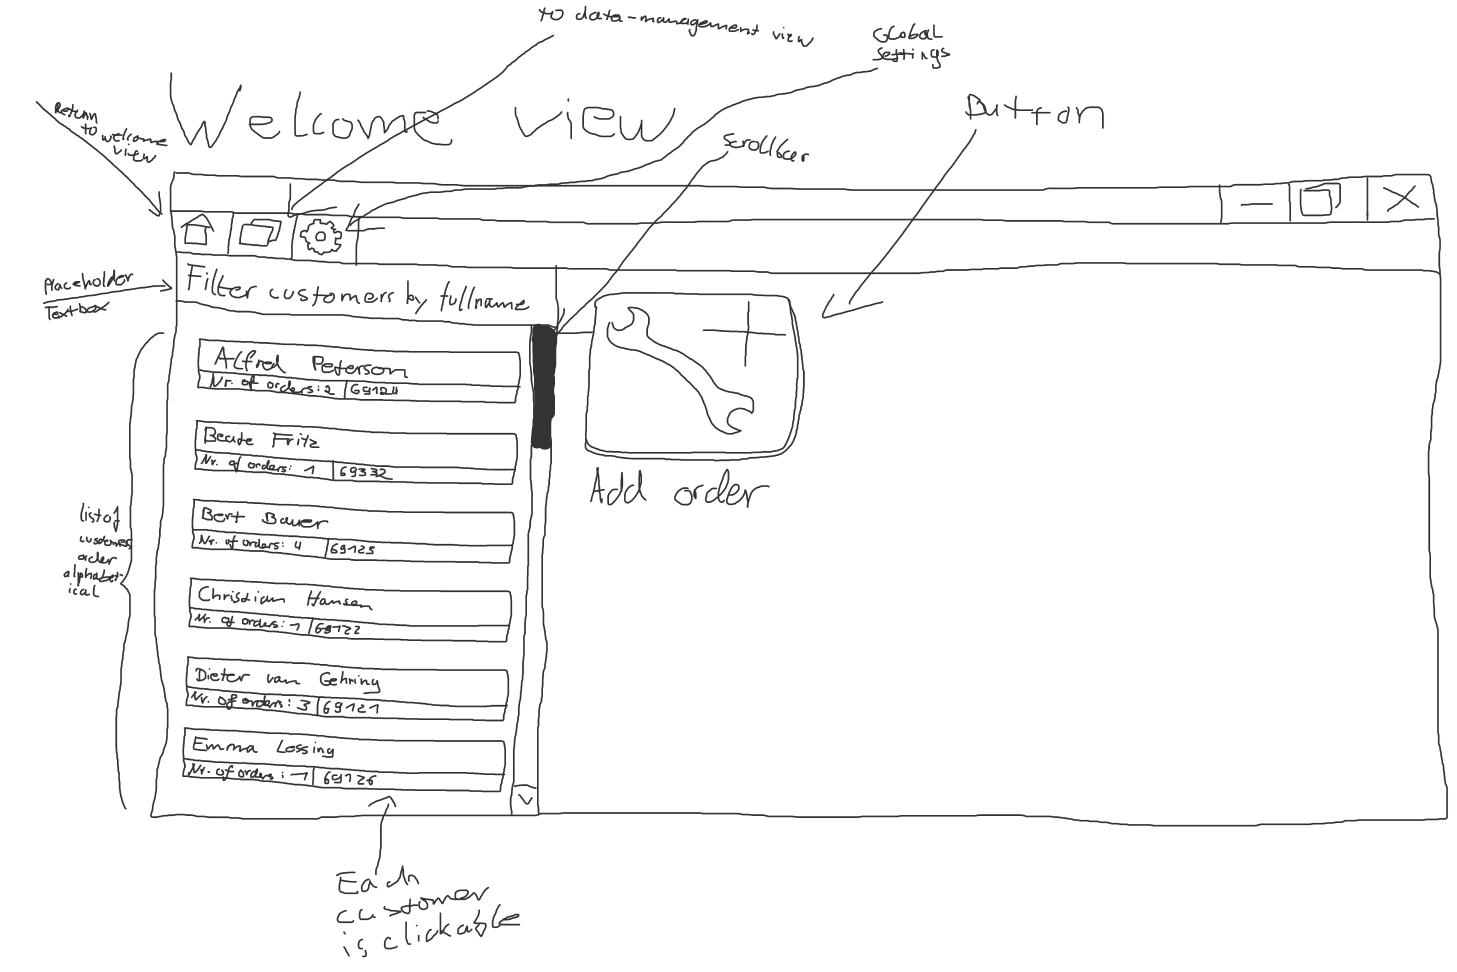 to data-management view
Global
settings
Return
to welcome
view
Welcome view
Scrollbar
Button
Placeholder
Textbox
Filter customers by fullname
Alfred Peterson
Nr. of orders: 2 69124
Beate Fritz
Nr. of orders: 1 69332
Bert Bauer
Nr. of orders: 4 69123
Christian Hansen
Nr. of orders: 1 69122
Dieter van Gehring
Nr. of orders: 3 69121
Emma Lossing
Nr. of orders: 1 69126
list of
customers
order
alphabet-
ical
Add order
Each
customer
is clickable